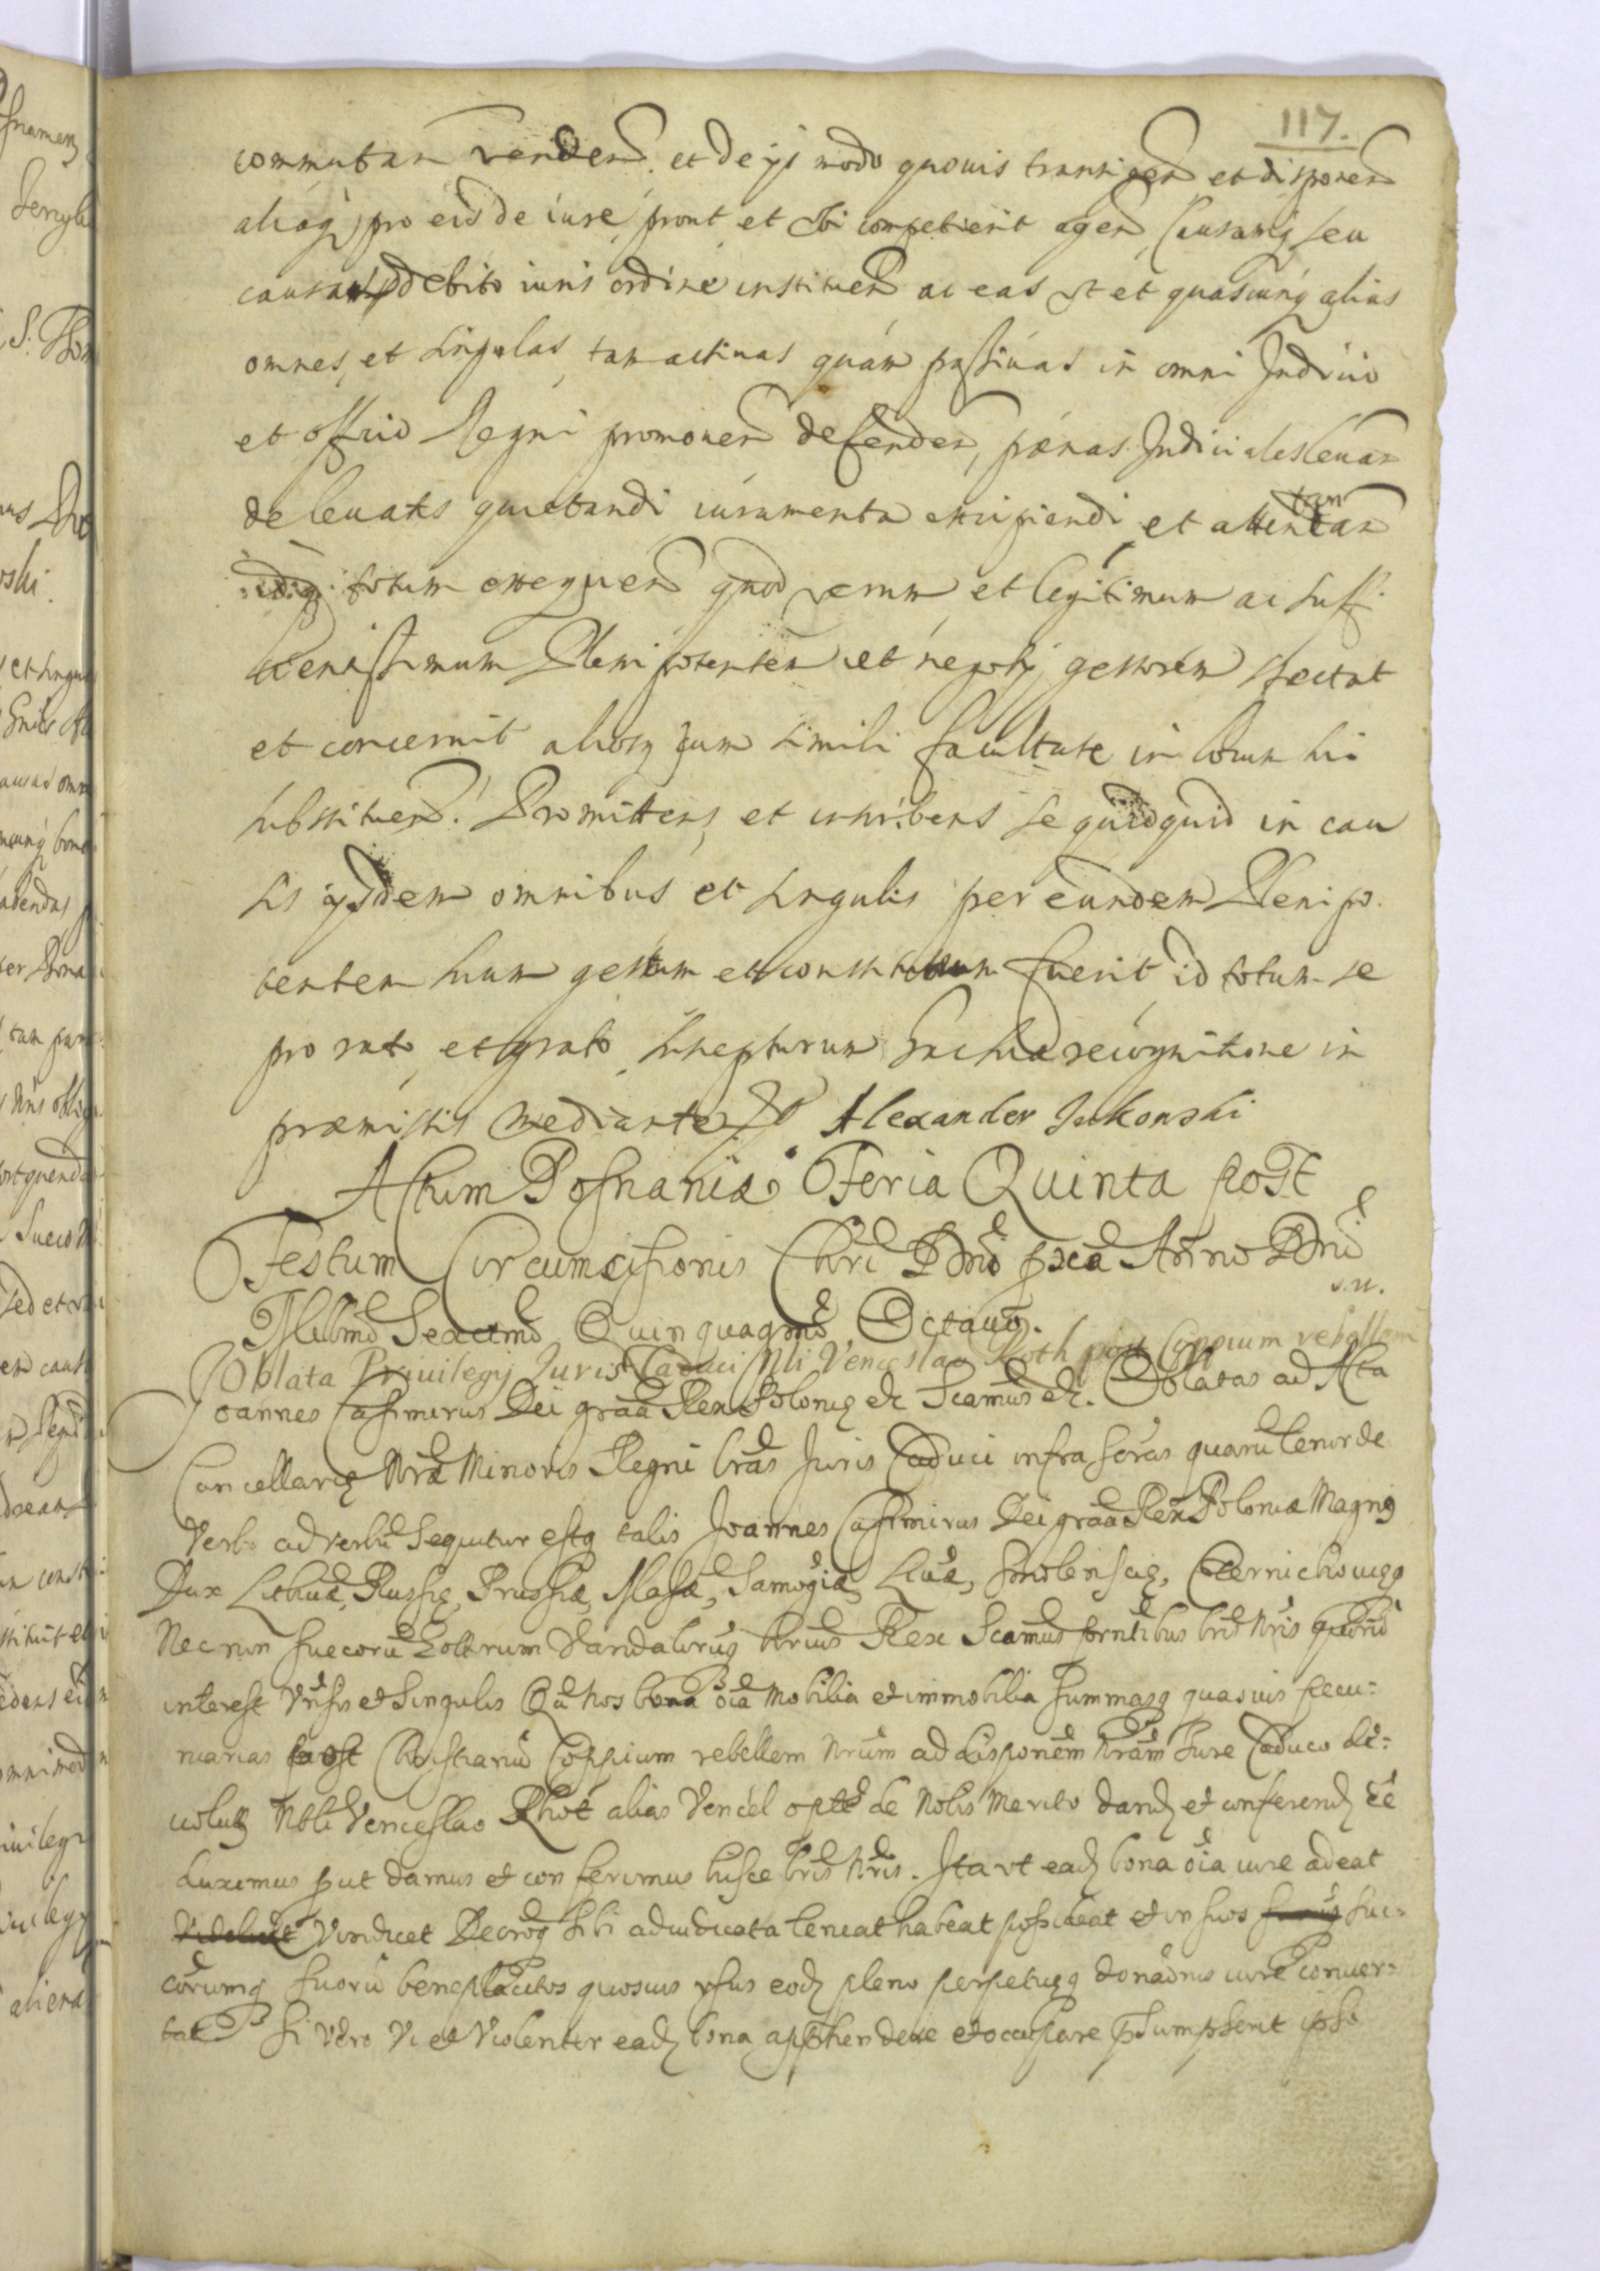 117.
commutan venden et de ijs modo quouis transigen et disponen
aliaq, pro eis de iure, prout et sibi competierit agen, Causamq, seu
causas debito iuris ordine instituen ac eas ut et quascunq alias
omnes, et singulas, tam actiuas quam passiuas in omni Judicio
et officio Regni promouen defenden, pœnas Judiciales leuan
de leuatis quietandi iuramenta excipiendi, et attentan
idq totum exequen quod verum et legitimum ac suffi
cientissimum Plenipotenten et negotij gestorem spectat
et concernit aliosq cum simili facultate in locum sui
substituen. Promittens, et inscribens se quidquid in cau
sis ijsdem omnibus et singulis per eundem Plenipo.
tentem suum gestum et constitutum fuerit id totum se
pro rato, et grato suscepturum hac sua recognitione in
præmissis mediante Alexander
Actum Posnaniæ Feria Quinta post
Festum Circumcisionis Chri Dni pxa Anno Dni
Millmo Sexcmo Quinquagmo Octauo.
s.n.
Oblata Priuilegij Juris Caduci Nli Venceslao Rhoth post Coppium rebellem
Joannes Casimirus Dei graa Rex Poloniæ etc Scamus etc. Oblatas ad Acta
Cancellariæ Nræ Minoris Regni lras Juris Caduci infra scras quaru tenor de
Verbo ad verbu sequitur estq talis Joannes Casimirus Dei graa Rex Poloniæ Magnq
Dux Lithuæ, Russiæ, Prussiæ, Masæ, Samogiæ, Liuæ, Smolensciæ, Czernichouiæq
Nec non Suecoru Gottorum Vandalorumq hrius Rex Scamus prntibus lris Nris quoru
interest Vnsis et Singulis Qa Nos bona oia Mobilia et immobilia Summasq quasuis pecu-
niarias post Christianu Coppium rebellem Nrum ad disponem Nram Jure Caduco de-
uolut Nbli Venceslao Rhot alias Vencel optte de Nobis Merito dand et conferend ee
duximus put damus et conferimus hisce lris Nris. Ita vt ead bona oia iure adeat
Vindicet Decretoq sibi adiudicata teneat habeat possideat et in suos suc-
corumq suoru beneplacitos quosuis vsus eod pleno perpetuæq donaonis iure conuer-
tat Si vero Vi et Violenter ead bona apphendere et occupare psumpserit ipso